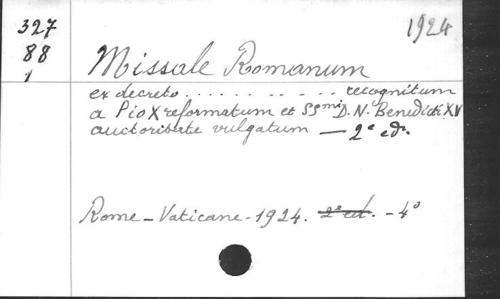 327
88
1
1924
Missale Romanum
ex decreto . . . . . . . . . . . recognitum
a Pio X reformatum et SSmi D. N. Benedicti XV
auctoritate vulgatum — 2e edn.
Rome - Vaticane - 1924. 2e ed. - 4°